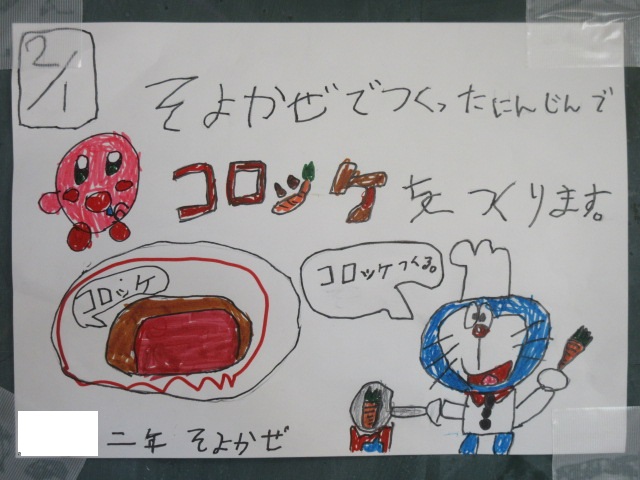 2/1
そよかぜでつくったにんじんで
コロッケをつくります。
コロッケつくる。
コロッケ
二年 そよかぜ